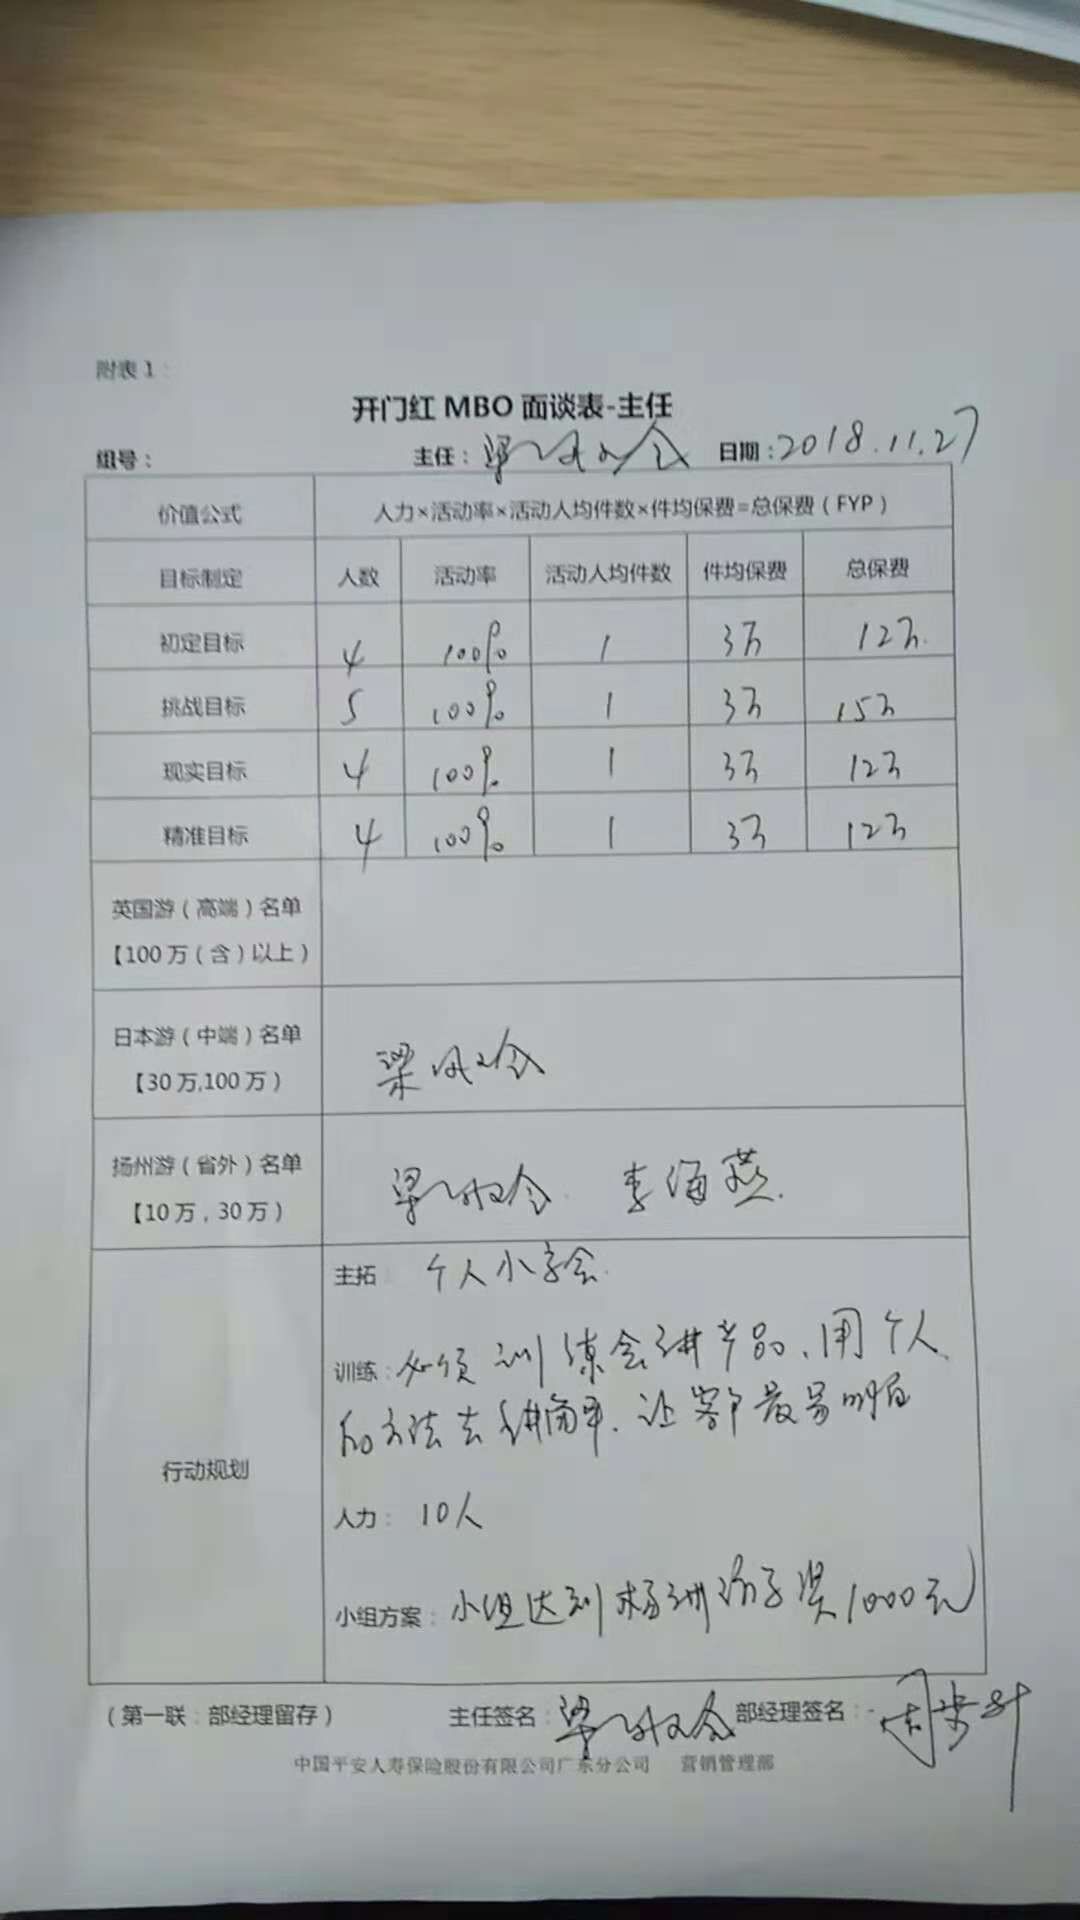 附表1：
开门红 MBO 面谈表-主任
组号： 主任： 日期：2018.11.27
价值公式 人力×活动率×活动人均件数×件均保费=总保费（FYP）
目标制定 人数 活动率 活动人均件数 件均保费 总保费
初定目标 4 100% 1 3万 12万
挑战目标 5 100% 1 3万 15万
现实目标 4 100% 1 3万 12万
精准目标 4 100% 1 3万 12万
英国游（高端）名单
【100万（含）以上）
日本游（中端）名单
【30万,100万）
梁凤金
扬州游（省外）名单
【10万，30万）
李海燕
行动规划
主拓 个人小字会
训练：必须训练会讲产品、用个人
的方法去讲简单.让客户最易明白
人力：10人
小组方案：小组达到杨洲游予奖1000元
（第一联：部经理留存） 主任签名： 部经理签名：
中国平安人寿保险股份有限公司广东分公司 营销管理部